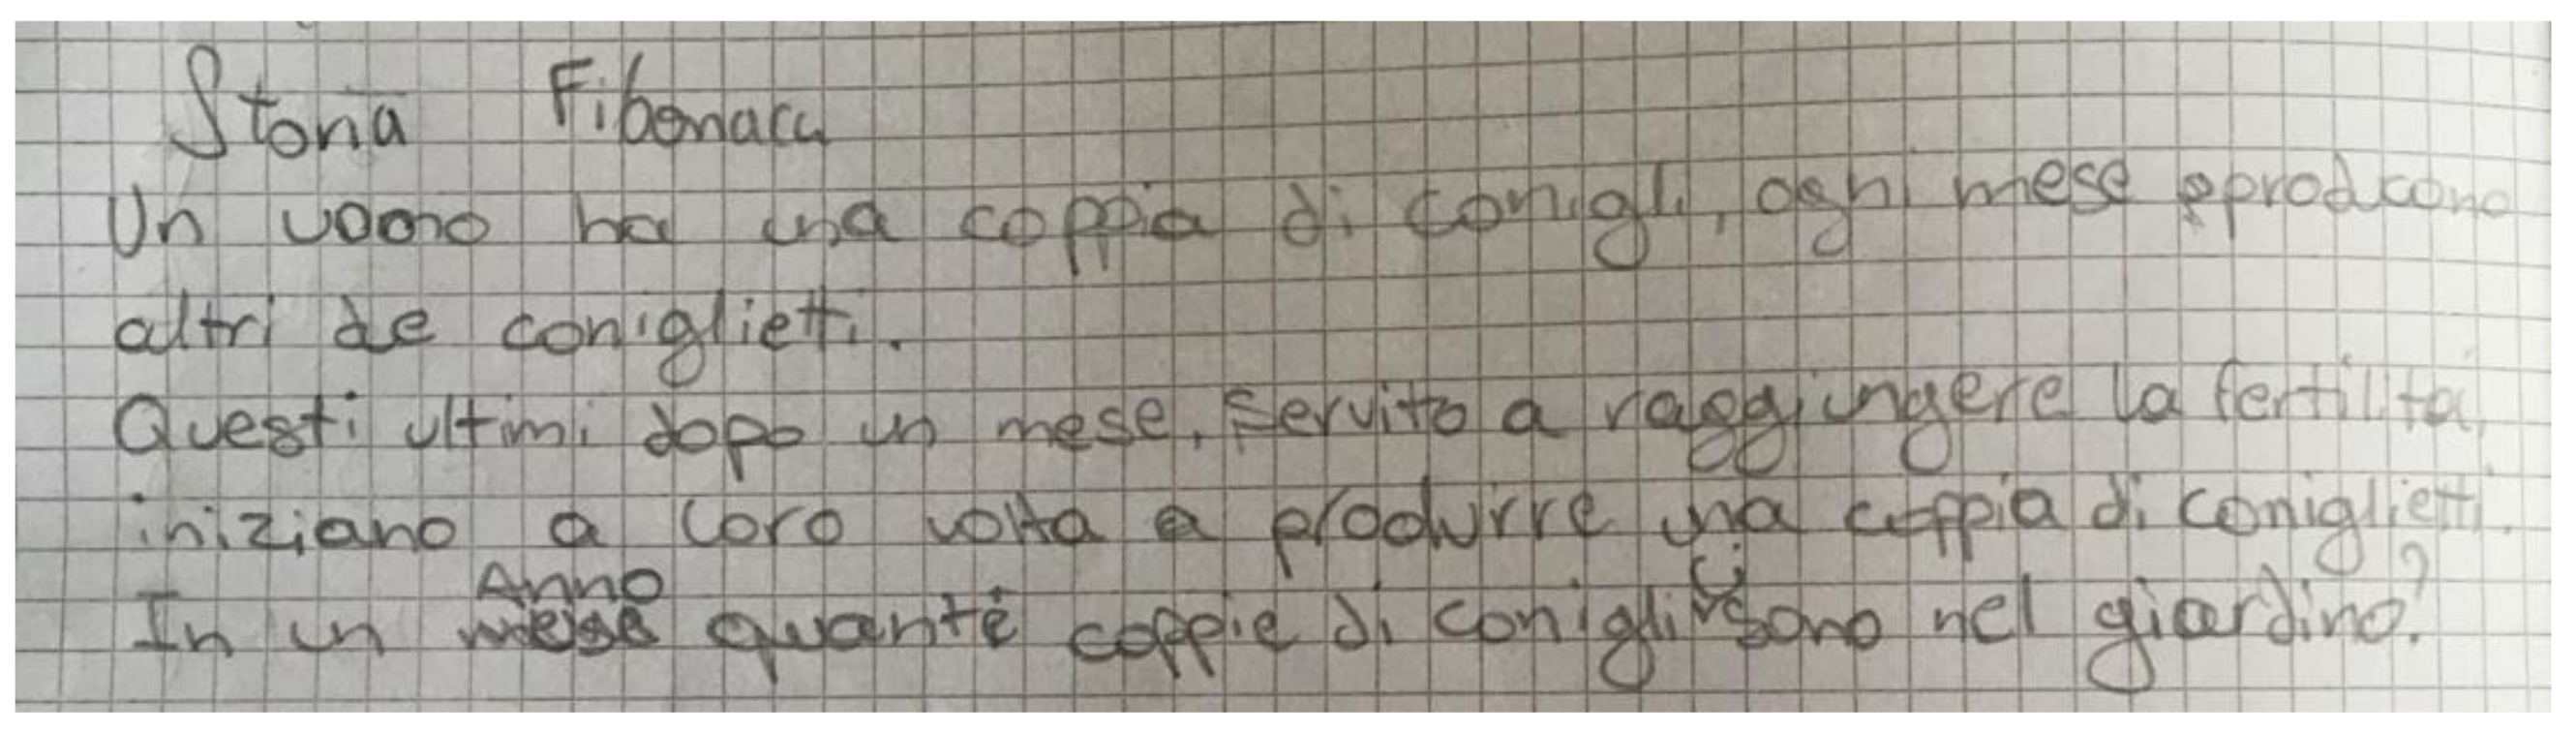 Storia Fibonacci
Un uomo ha una coppia di conigli, ogni mese producono
altri due coniglietti.
Questi ultimi dopo un mese, servito a raggiungere la fertilità,
iniziano a loro volta a produrre una coppia di coniglietti.
In un Anno quante coppie di conigli ci sono nel giardino?